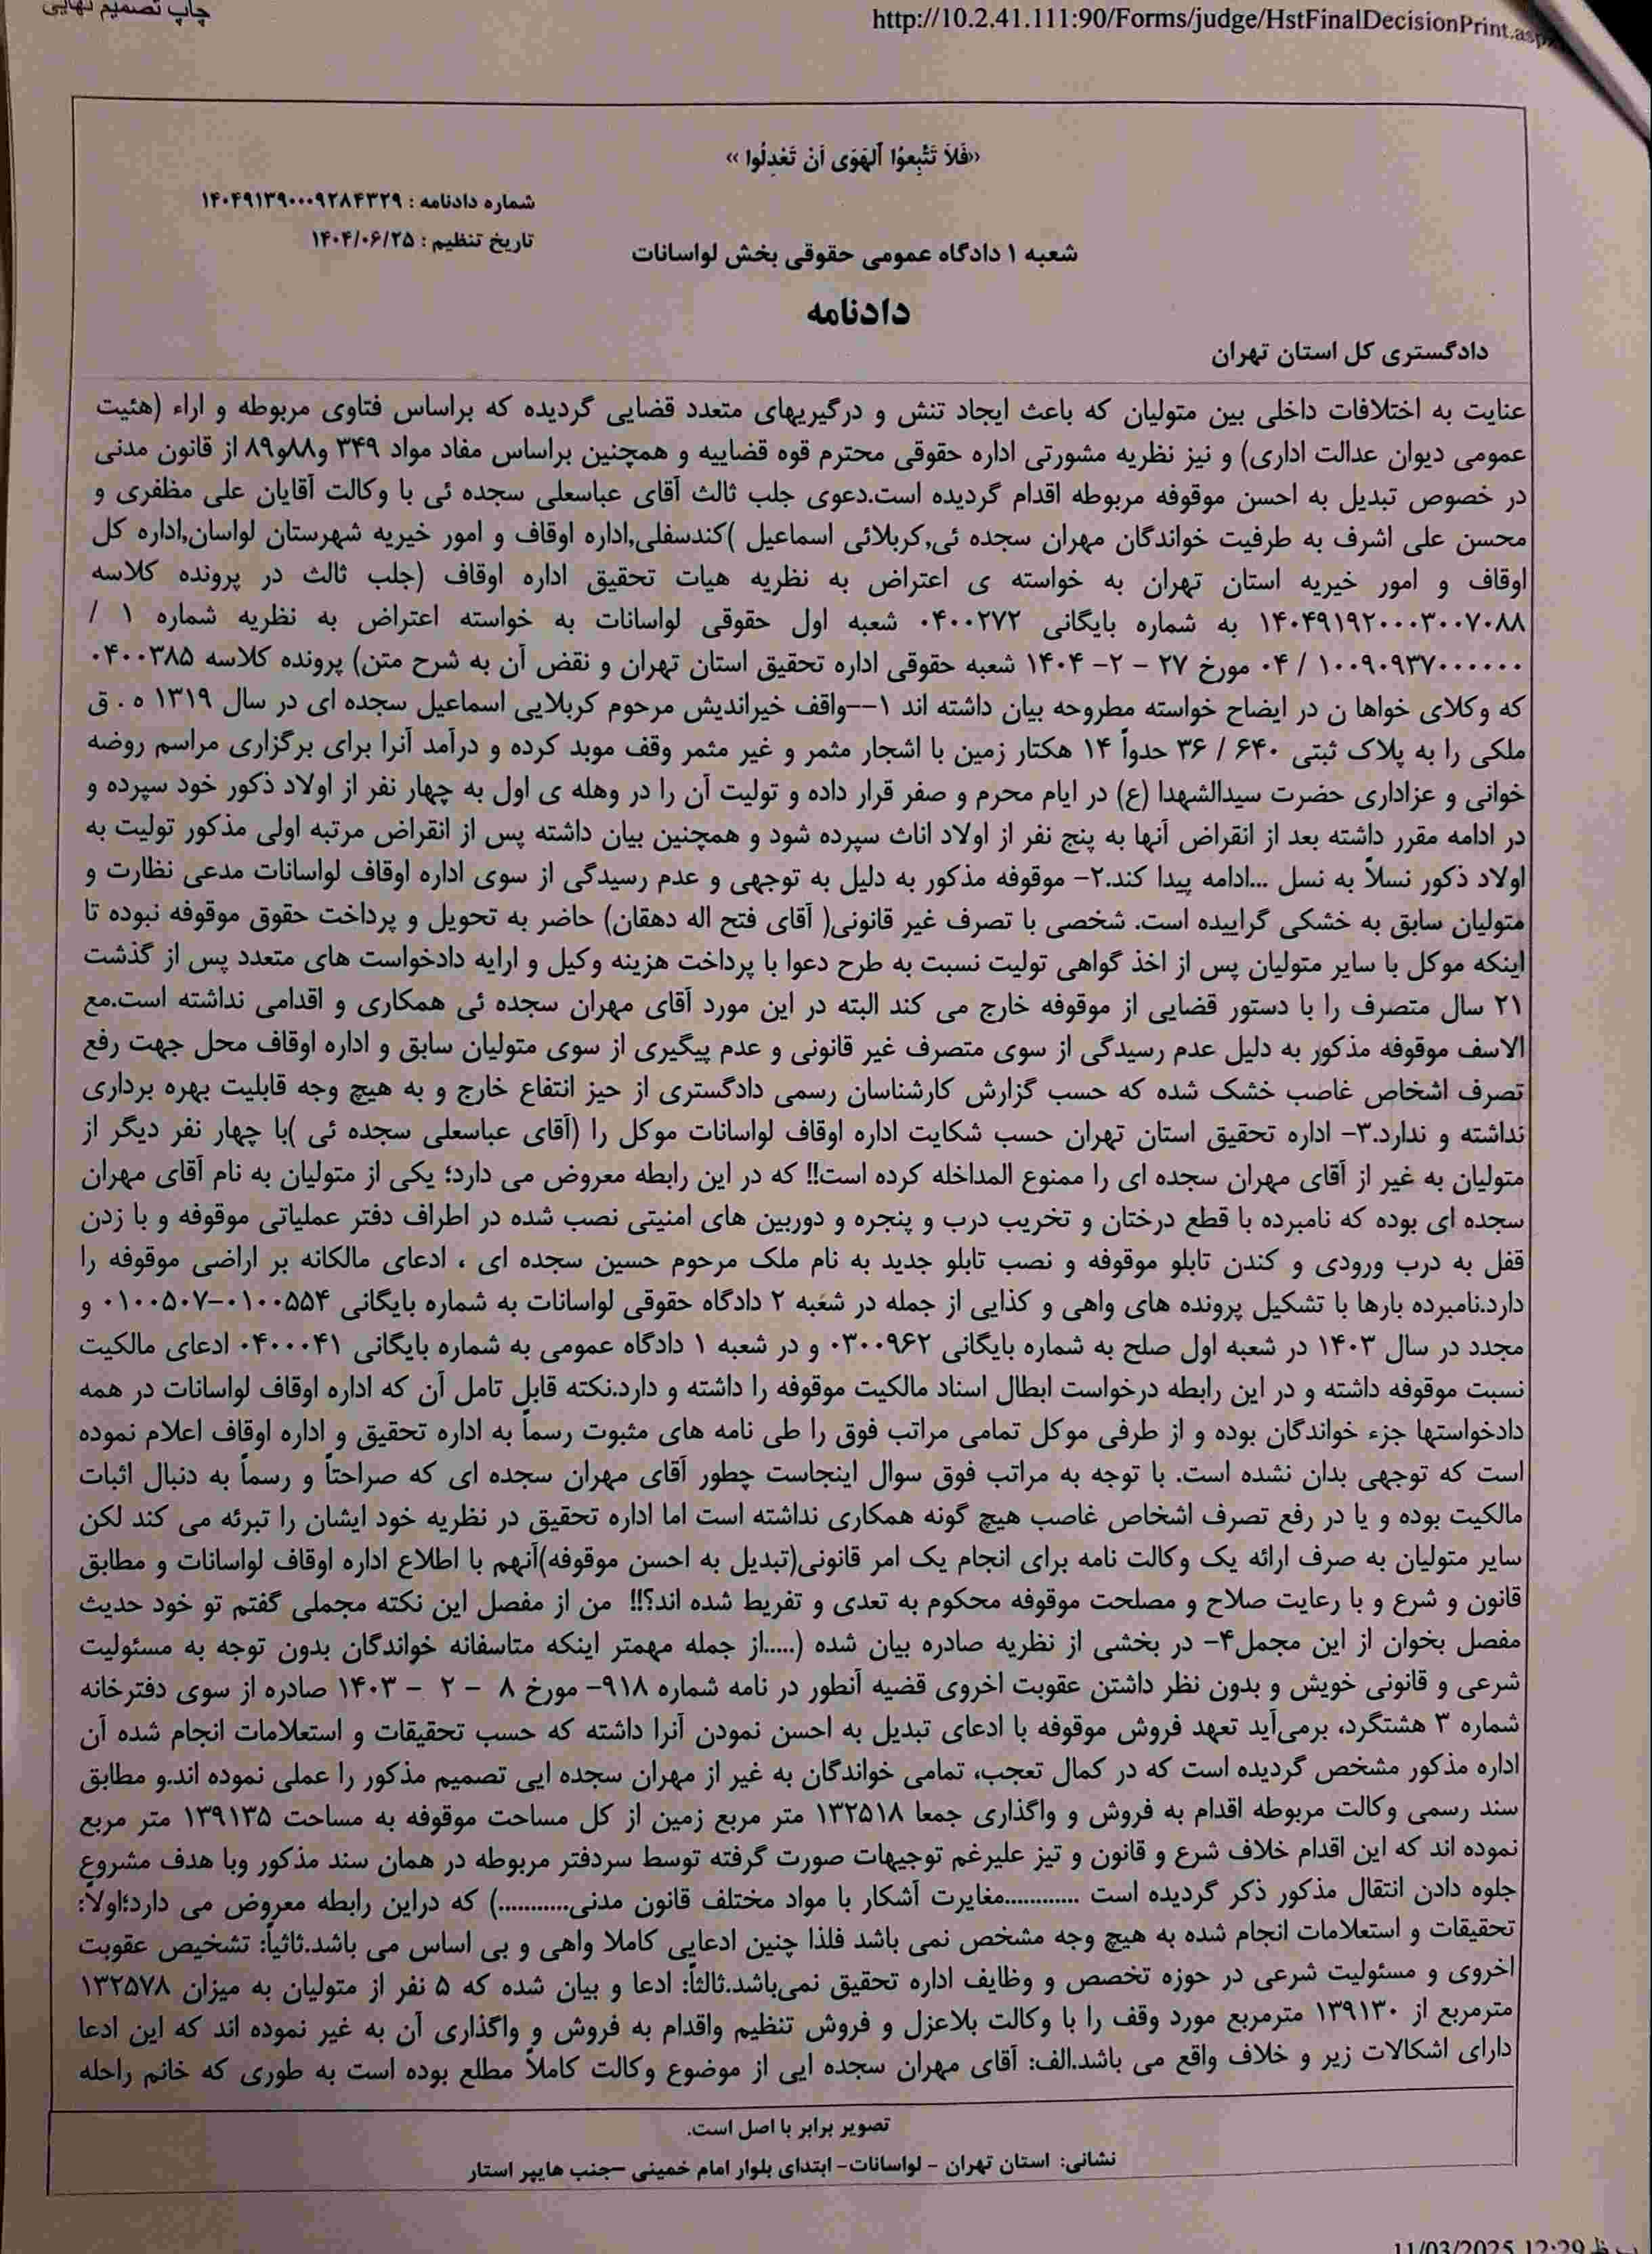 چاپ تصمیم نهایی
http://10.2.41.111:90/Forms/judge/HstFinalDecisionPrint.asp
«فَلاَ تَتَّبِعوُا اَلهَوَی اَنْ تَعْدِلُوا»
شماره دادنامه : ۱۴۰۴۹۱۳۹۰۰۰۹۲۸۴۳۲۹
تاریخ تنظیم : ۱۴۰۴/۰۶/۲۵
شعبه ۱ دادگاه عمومی حقوقی بخش لواسانات
دادنامه
دادگستری کل استان تهران
عنایت به اختلافات داخلی بین متولیان که باعث ایجاد تنش و درگیریهای متعدد قضایی گردیده که براساس فتاوی مربوطه و اراء (هئیت
عمومی دیوان عدالت اداری) و نیز نظریه مشورتی اداره حقوقی محترم قوه قضاییه و همچنین براساس مفاد مواد ۳۴۹ و۸۸و۸۹ از قانون مدنی
در خصوص تبدیل به احسن موقوفه مربوطه اقدام گردیده است.دعوی جلب ثالث آقای عباسعلی سجده ئی با وکالت آقایان علی مظفری و
محسن علی اشرف به طرفیت خواندگان مهران سجده ئی,کربلائی اسماعیل )کندسفلی,اداره اوقاف و امور خیریه شهرستان لواسان,اداره کل
اوقاف و امور خیریه استان تهران به خواسته ی اعتراض به نظریه هیات تحقیق اداره اوقاف (جلب ثالث در پرونده کلاسه
۱۴۰۴۹۱۹۲۰۰۰۳۰۰۷۰۸۸ به شماره بایگانی ۰۴۰۰۲۷۲ شعبه اول حقوقی لواسانات به خواسته اعتراض به نظریه شماره ۱ /
۱۰۰۹۰۹۳۷۰۰۰۰۰۰ / ۰۴ مورخ ۲۷ - ۲- ۱۴۰۴ شعبه حقوقی اداره تحقیق استان تهران و نقض آن به شرح متن) پرونده کلاسه ۰۴۰۰۳۸۵
که وکلای خواها ن در ایضاح خواسته مطروحه بیان داشته اند ۱--واقف خیراندیش مرحوم کربلایی اسماعیل سجده ای در سال ۱۳۱۹ ه . ق
ملکی را به پلاک ثبتی ۶۴۰ / ۳۶ حدواً ۱۴ هکتار زمین با اشجار مثمر و غیر مثمر وقف موبد کرده و درآمد آنرا برای برگزاری مراسم روضه
خوانی و عزاداری حضرت سیدالشهدا (ع) در ایام محرم و صفر قرار داده و تولیت آن را در وهله ی اول به چهار نفر از اولاد ذکور خود سپرده و
در ادامه مقرر داشته بعد از انقراض آنها به پنج نفر از اولاد اناث سپرده شود و همچنین بیان داشته پس از انقراض مرتبه اولی مذکور تولیت به
اولاد ذکور نسلاً به نسل ...ادامه پیدا کند.۲- موقوفه مذکور به دلیل به توجهی و عدم رسیدگی از سوی اداره اوقاف لواسانات مدعی نظارت و
متولیان سابق به خشکی گراییده است. شخصی با تصرف غیر قانونی( آقای فتح اله دهقان) حاضر به تحویل و پرداخت حقوق موقوفه نبوده تا
اینکه موکل با سایر متولیان پس از اخذ گواهی تولیت نسبت به طرح دعوا با پرداخت هزینه وکیل و ارایه دادخواست های متعدد پس از گذشت
۲۱ سال متصرف را با دستور قضایی از موقوفه خارج می کند البته در این مورد آقای مهران سجده ئی همکاری و اقدامی نداشته است.مع
الاسف موقوفه مذکور به دلیل عدم رسیدگی از سوی متصرف غیر قانونی و عدم پیگیری از سوی متولیان سابق و اداره اوقاف محل جهت رفع
تصرف اشخاص غاصب خشک شده که حسب گزارش کارشناسان رسمی دادگستری از حیز انتفاع خارج و به هیچ وجه قابلیت بهره برداری
نداشته و ندارد.۳- اداره تحقیق استان تهران حسب شکایت اداره اوقاف لواسانات موکل را (آقای عباسعلی سجده ئی )با چهار نفر دیگر از
متولیان به غیر از آقای مهران سجده ای را ممنوع المداخله کرده است!! که در این رابطه معروض می دارد؛ یکی از متولیان به نام آقای مهران
سجده ای بوده که نامبرده با قطع درختان و تخریب درب و پنجره و دوربین های امنیتی نصب شده در اطراف دفتر عملیاتی موقوفه و با زدن
قفل به درب ورودی و کندن تابلو موقوفه و نصب تابلو جدید به نام ملک مرحوم حسین سجده ای ، ادعای مالکانه بر اراضی موقوفه را
دارد.نامبرده بارها با تشکیل پرونده های واهی و کذایی از جمله در شعبه ۲ دادگاه حقوقی لواسانات به شماره بایگانی ۰۱۰۰۵۵۴-۰۱۰۰۵۰۷ و
مجدد در سال ۱۴۰۳ در شعبه اول صلح به شماره بایگانی ۰۳۰۰۹۶۲ و در شعبه ۱ دادگاه عمومی به شماره بایگانی ۰۴۰۰۰۴۱ ادعای مالکیت
نسبت موقوفه داشته و در این رابطه درخواست ابطال اسناد مالکیت موقوفه را داشته و دارد.نکته قابل تامل آن که اداره اوقاف لواسانات در همه
دادخواستها جزء خواندگان بوده و از طرفی موکل تمامی مراتب فوق را طی نامه های مثبوت رسماً به اداره تحقیق و اداره اوقاف اعلام نموده
است که توجهی بدان نشده است. با توجه به مراتب فوق سوال اینجاست چطور آقای مهران سجده ای که صراحتاً و رسماً به دنبال اثبات
مالکیت بوده و یا در رفع تصرف اشخاص غاصب هیچ گونه همکاری نداشته است اما اداره تحقیق در نظریه خود ایشان را تبرئه می کند لکن
سایر متولیان به صرف ارائه یک وکالت نامه برای انجام یک امر قانونی(تبدیل به احسن موقوفه)آنهم با اطلاع اداره اوقاف لواسانات و مطابق
قانون و شرع و با رعایت صلاح و مصلحت موقوفه محکوم به تعدی و تفریط شده اند؟!! من از مفصل این نکته مجملی گفتم تو خود حدیث
مفصل بخوان از این مجمل۴- در بخشی از نظریه صادره بیان شده (.....از جمله مهمتر اینکه متاسفانه خواندگان بدون توجه به مسئولیت
شرعی و قانونی خویش و بدون نظر داشتن عقوبت اخروی قضیه آنطور در نامه شماره ۹۱۸- مورخ ۸ - ۲ - ۱۴۰۳ صادره از سوی دفترخانه
شماره ۳ هشتگرد، برمی‌آید تعهد فروش موقوفه با ادعای تبدیل به احسن نمودن آنرا داشته که حسب تحقیقات و استعلامات انجام شده آن
اداره مذکور مشخص گردیده است که در کمال تعجب، تمامی خواندگان به غیر از مهران سجده ایی تصمیم مذکور را عملی نموده اند.و مطابق
سند رسمی وکالت مربوطه اقدام به فروش و واگذاری جمعا ۱۳۲۵۱۸ متر مربع زمین از کل مساحت موقوفه به مساحت ۱۳۹۱۳۵ متر مربع
نموده اند که این اقدام خلاف شرع و قانون و تیز علیرغم توجیهات صورت گرفته توسط سردفتر مربوطه در همان سند مذکور وبا هدف مشروع
جلوه دادن انتقال مذکور ذکر گردیده است ............مغایرت آشکار با مواد مختلف قانون مدنی...........) که دراین رابطه معروض می دارد؛اولاً:
تحقیقات و استعلامات انجام شده به هیچ وجه مشخص نمی باشد فلذا چنین ادعایی کاملا واهی و بی اساس می باشد.ثانیاً: تشخیص عقوبت
اخروی و مسئولیت شرعی در حوزه تخصص و وظایف اداره تحقیق نمی‌باشد.ثالثاً: ادعا و بیان شده که ۵ نفر از متولیان به میزان ۱۳۲۵۷۸
مترمربع از ۱۳۹۱۳۰ مترمربع مورد وقف را با وکالت بلاعزل و فروش تنظیم واقدام به فروش و واگذاری آن به غیر نموده اند که این ادعا
دارای اشکالات زیر و خلاف واقع می باشد.الف: آقای مهران سجده ایی از موضوع وکالت کاملاً مطلع بوده است به طوری که خانم راحله
تصویر برابر با اصل است.
نشانی: استان تهران - لواسانات- ابتدای بلوار امام خمینی -جنب هایپر استار
11/03/2025 12:29 ب.ظ